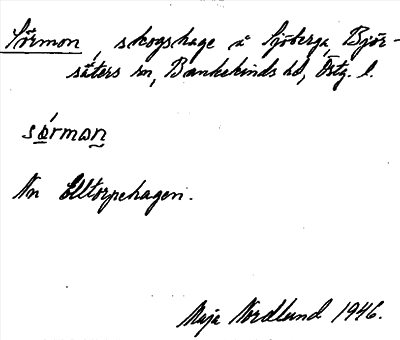 Sörmon, skogshage å Sjöberga, Björ-
säters sn, Bankekinds hd, Östg. l.
sörman
An Elltorpehagen.
Maja Nordlund 1946.